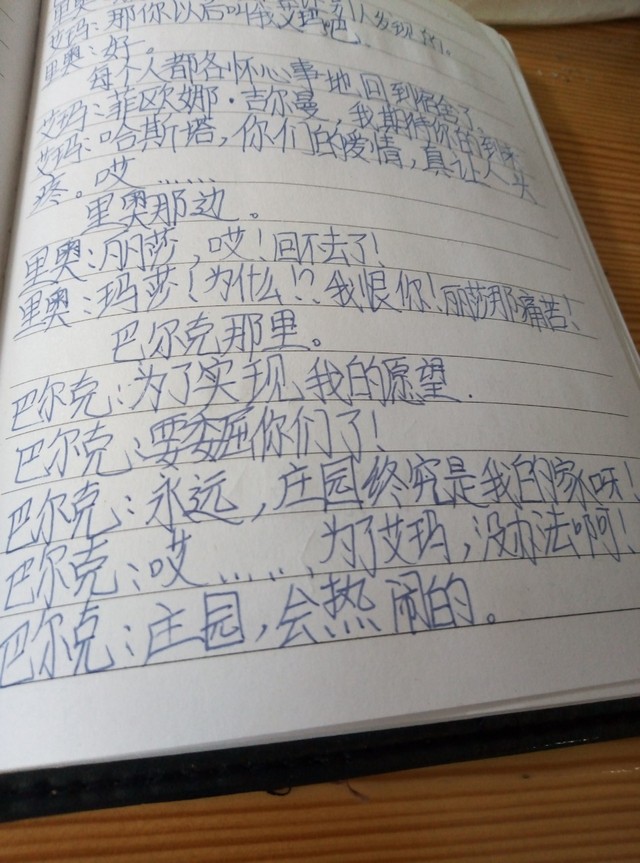 里奥:
艾玛:那你以后叫我艾玛吧。
里奥:好。
每个人都各怀心事地回到宿舍了。
艾玛:菲欧娜·吉尔曼,我期待你的到来
艾玛:哈斯塔,你们的爱情,真让人头
疼。哎……
里奥那边。
里奥:丽莎,哎!回不去了!
里奥:玛莎!为什么!?我恨你!丽莎那痛苦!
巴尔克那里。
巴尔克:为了实现我的愿望.
巴尔克:要委屈你们了!
巴尔克:永远,庄园终究是我的家呀!
巴尔克:哎……为了艾玛,没办法啊!
巴尔克:庄园,会热闹的。